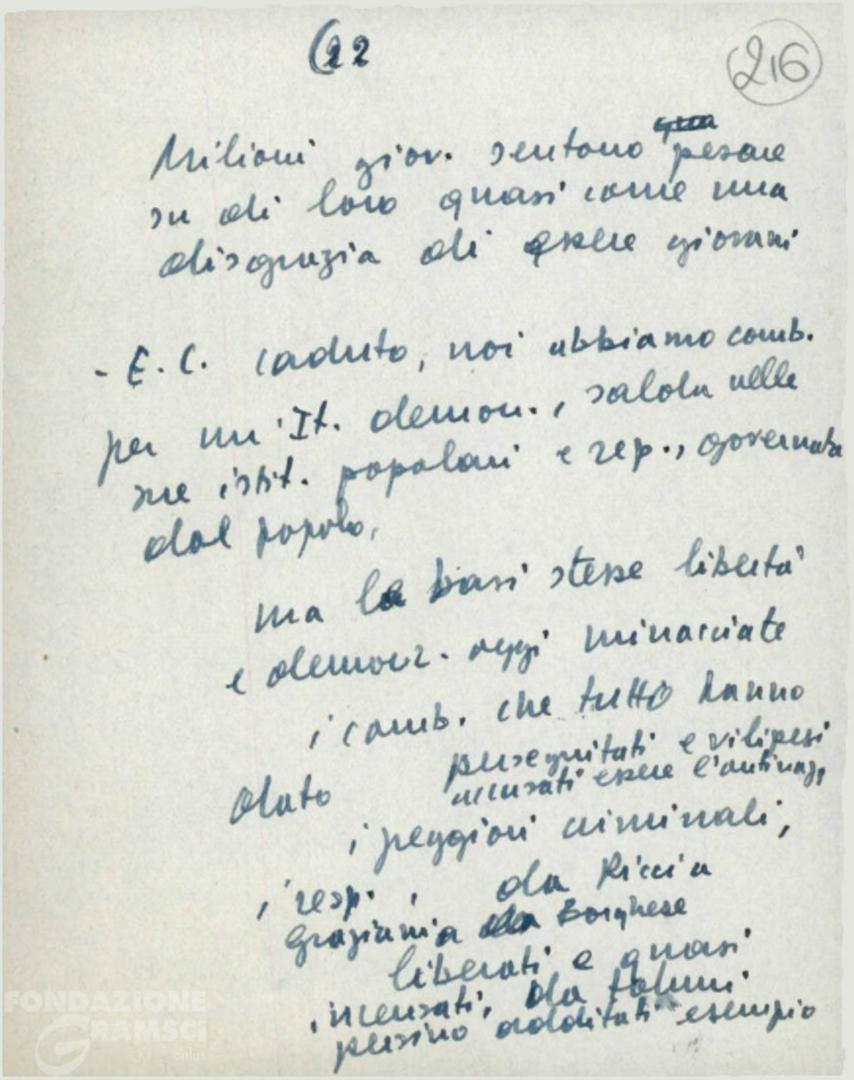 (22
216
Milioni giov. sentono pesare
su di loro quasi come una
disgrazia di essere giovani
- E. C. caduto, noi abbiamo comb.
per un'It. democr., salda nelle
sue istit. popolari e rep., governata
dal popolo,
ma le basi stesse libertà
e democr. oggi minacciate
i comb. che tutto hanno
dato perseguitati e vilipesi
accusati essere l'antinaz.
i peggiori criminali,
i resp., da Riccia
Graziani a Borghese
liberati e quasi
incensati, da taluni
persino additati esempio
FONDAZIONE
GRAMSCI
onlus